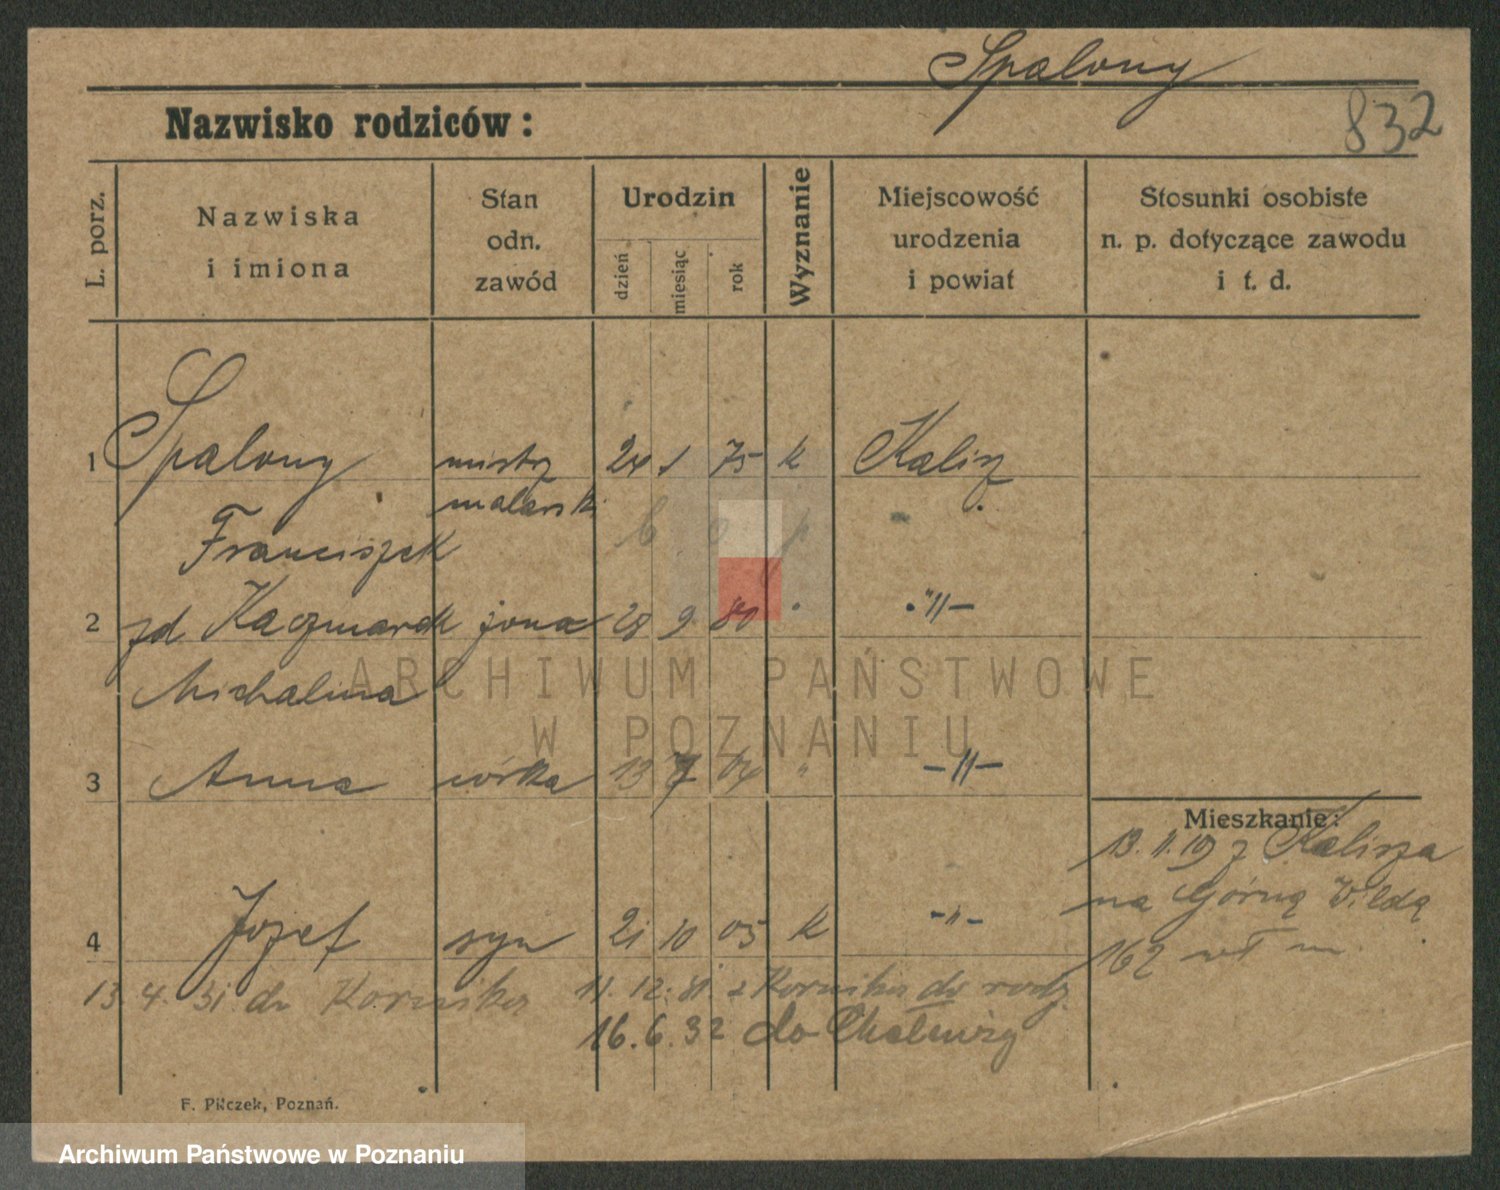 Spalony
Nazwisko rodziców:
832
L. porz.
Nazwiska
i imiona
Stan
odn.
zawód
Urodzin
dzień
miesiąc
rok
Wyznanie
Miejscowość
urodzenia
i powiat
Stosunki osobiste
n. p. dotyczące zawodu
i t. d.
1 Spalony mistrz 24 1 75 k Kalisz
malarski
Franciszek
2 zd. Kaczmarek żona 28 9 80 " -"-
Michalina
ARCHIWUM PAŃSTWOWE
W POZNANIU
3 Anna córka 13 7 04 " -"-
Mieszkanie:
13.11.19 z Kalisza
na Górną Wildą
162
4 Józef syn 21 10 05 k -"-
13 4. 31 do Kornika 11. 12. 31 z Kornika do rodz.
16. 6. 32 do
F. Pilczek, Poznań.
Archiwum Państwowe w Poznaniu